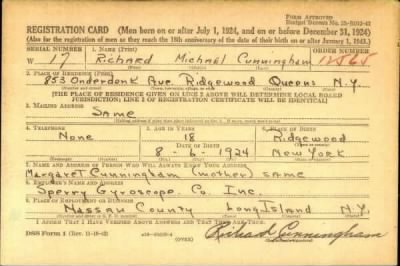 FORM APPROVED
REGISTRATION CARD (Men born on or after July 1, 1924, and on or before December 31, 1924)
(Also for the registration of men as they reach the 18th anniversary of the date of their birth on or after January 1, 1943.)
SERIAL NUMBER 1. NAME (Print) ORDER NUMBER
W 17 Richard Michael Cunningham
(First) (Middle) (Last)
2. PLACE OF RESIDENCE (Print)
853 Onderdonk Ave. Ridgewood Queens N.Y.
[THE PLACE OF RESIDENCE GIVEN ON LINE 2 ABOVE WILL DETERMINE LOCAL BOARD
JURISDICTION; LINE 2 OF REGISTRATION CERTIFICATE WILL BE IDENTICAL]
3. MAILING ADDRESS
Same
4. TELEPHONE 5. AGE IN YEARS 6. PLACE OF BIRTH
None 18 Ridgewood
DATE OF BIRTH
8-6-1924 New York
7. NAME AND ADDRESS OF PERSON WHO WILL ALWAYS KNOW YOUR ADDRESS
Margaret Cunningham (mother) same
8. EMPLOYER'S NAME AND ADDRESS
Sperry Gyroscope Co. Inc.
9. PLACE OF EMPLOYMENT OR BUSINESS
Nassau County Long Island N.Y.
I AFFIRM THAT I HAVE VERIFIED ABOVE ANSWERS AND THAT THEY ARE TRUE.
DSS Form 1
(OVER)
Richard Cunningham